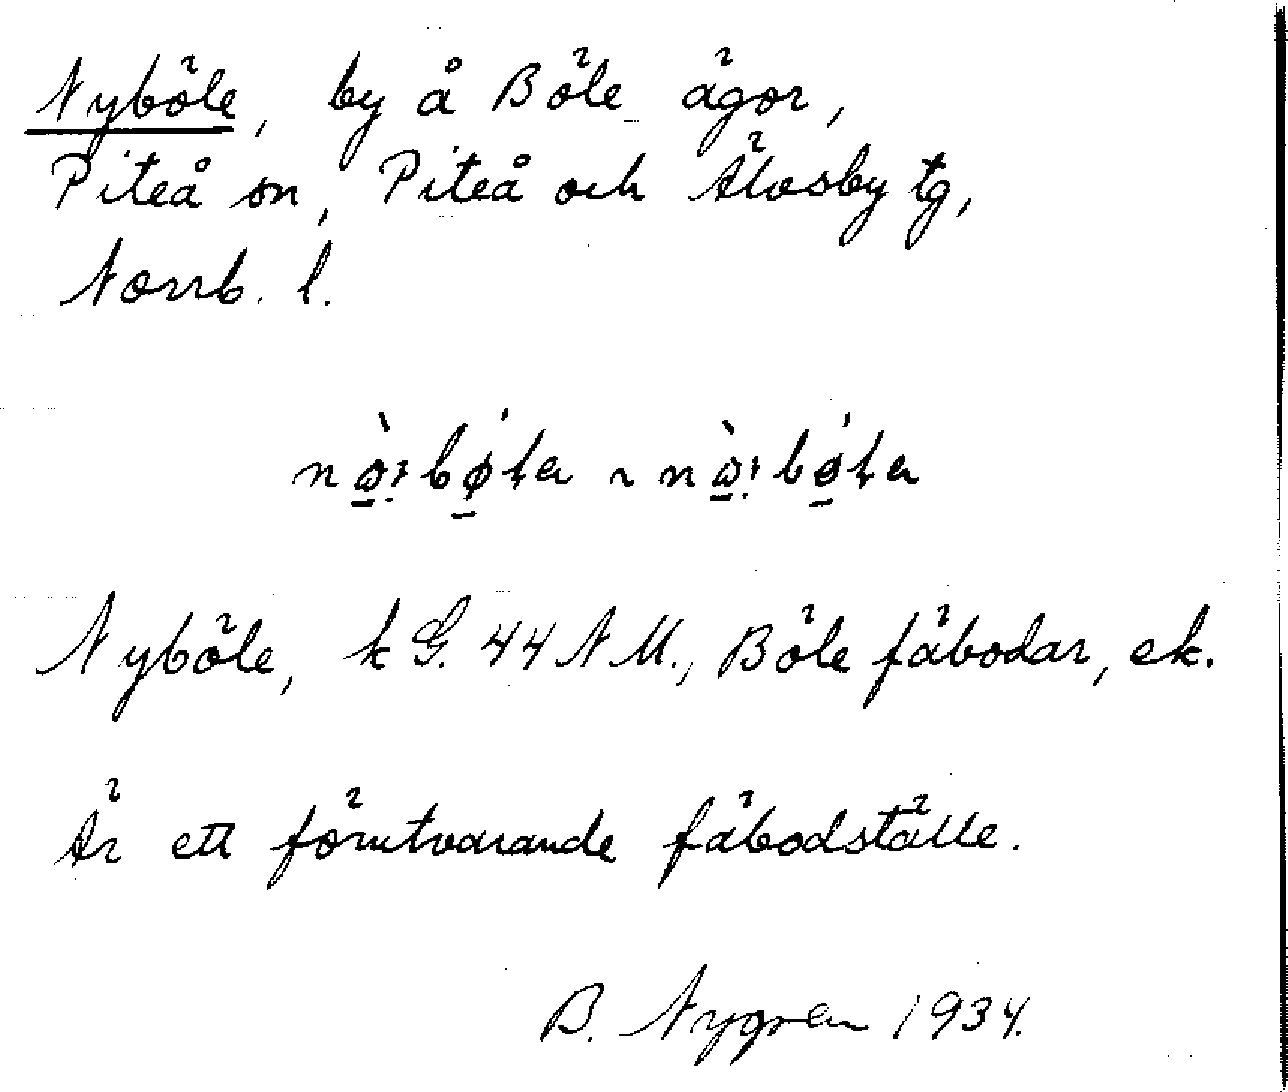 Nyböle, by å Böle ägor,
Piteå sn, Piteå och Älvsby tg,
Norrb. l.
Nyböle, k G. 44 N M., Böle fäbodar, ek.
Är ett förutvarande fäbodställe.
B. Nygren 1934.